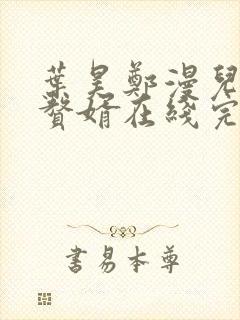 葉昊鄭漫兒
贅婿在綫完
書易本尊